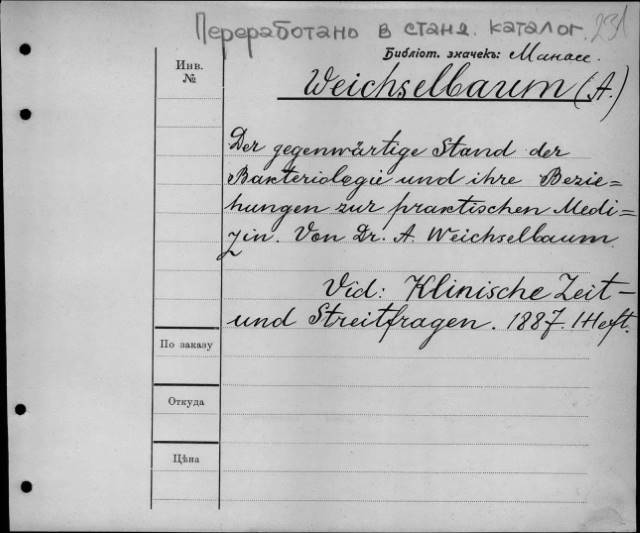 Переработано в станд. каталог. 231
Библіот. значекъ: Манас.
Инв.
№
Weichselbaum (A.)
Der gegenwärtige Stand der
Bakteriologie und ihre Bezie=
hungen zur praktischen Medi=
zin. Von Dr. A. Weichselbaum.
Vid: Klinische Zeit-
und Streitfragen. 1887. 1 Heft.
По заказу
Откуда
Цѣна